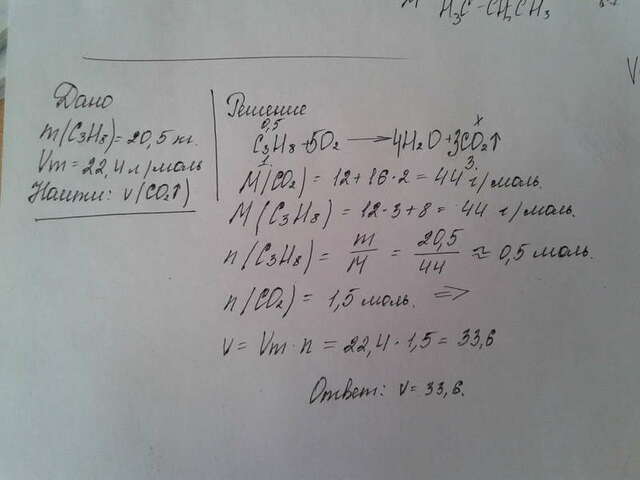 H₃C - CH₂CH₃
Дано
m(C₃H₈) = 20,5 кг.
Vm = 22,4 л/моль
Найти: v(CO₂↑)
Решение
0,5 x
C₃H₈ + 5O₂ → 4H₂O + 3CO₂↑
1 3
M(CO₂) = 12 + 16 · 2 = 44 г/моль.
M(C₃H₈) = 12 · 3 + 8 = 44 г/моль.
n(C₃H₈) = m/M = 20,5/44 ≈ 0,5 моль.
n(CO₂) = 1,5 моль. =>
v = Vm · n = 22,4 · 1,5 = 33,6
Ответ: v = 33,6.